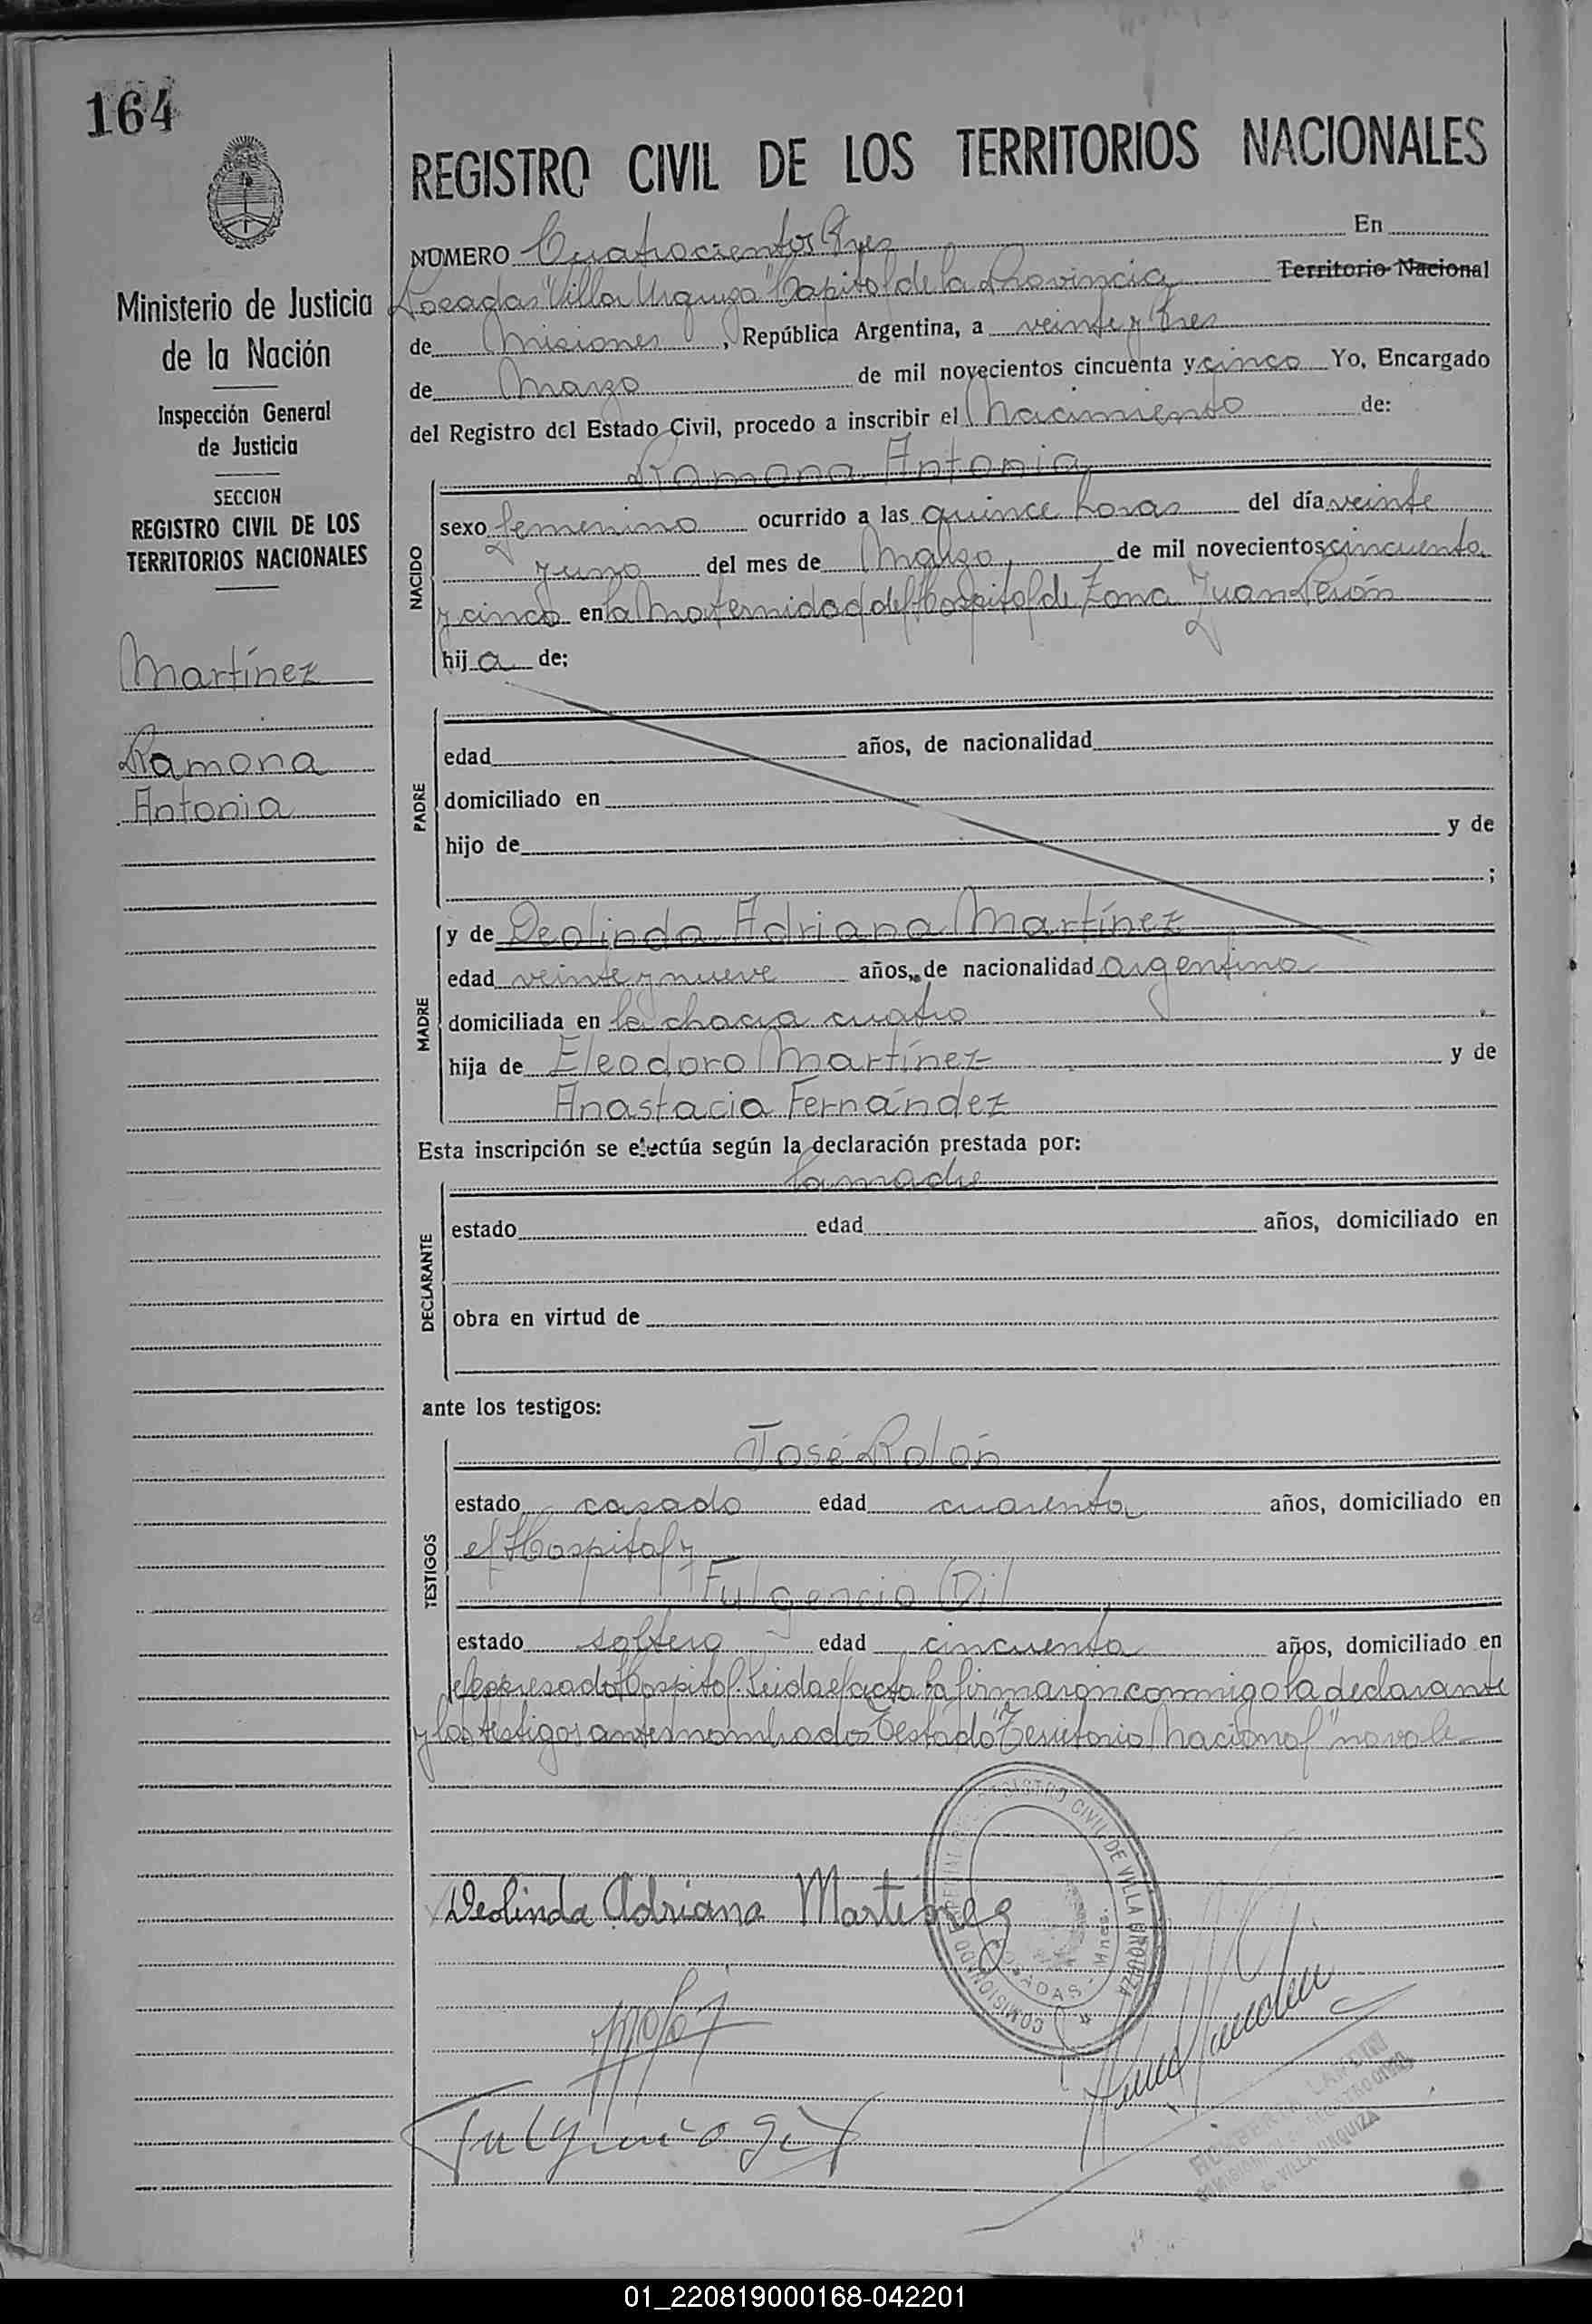 164
REGISTRO CIVIL DE LOS TERRITORIOS NACIONALES
NUMERO Cuatrocientos Tres En
Posadas "Villa Urquiza" Capital de la Provincia Territorio Nacional
de Misiones, República Argentina, a veinte y Tres
de Marzo de mil novecientos cincuenta y cinco Yo, Encargado
del Registro del Estado Civil, procedo a inscribir el Nacimiento de:
Ministerio de Justicia
de la Nación
Inspección General
de Justicia
SECCION
REGISTRO CIVIL DE LOS
TERRITORIOS NACIONALES
Martínez
Ramona
Antonia
Ramona Antonia
NACIDO
sexo femenino ocurrido a las quince horas del día veinte
y uno del mes de Marzo de mil novecientos cincuenta
y cinco en la Maternidad del Hospital de Zona Juan Perón
hija de:
PADRE
edad años, de nacionalidad
domiciliado en
hijo de y de
;
MADRE
y de Deolinda Adriana Martínez
edad veinte y nueve años, de nacionalidad argentina
domiciliada en la chacra cuatro
hija de Eleodoro Martínez y de
Anastacia Fernández
Esta inscripción se efectúa según la declaración prestada por:
la madre
DECLARANTE
estado edad años, domiciliado en
obra en virtud de
ante los testigos:
TESTIGOS
José Rolón
estado casado edad cuarenta años, domiciliado en
el Hospital y
Fulgencio Gil
estado soltero edad cincuenta años, domiciliado en
el expresado Hospital. Leida el acta la firmaron conmigo la declarante
y los testigos antes nombrados Testado "Territorio Nacional" no vale
Deolinda Adriana Martínez
REGISTRO CIVIL DE VILLA URQUIZA
COMISIONADO
POSADAS - Mnes.
Fulgencio Gil
VILLA URQUIZA
01_220819000168-042201